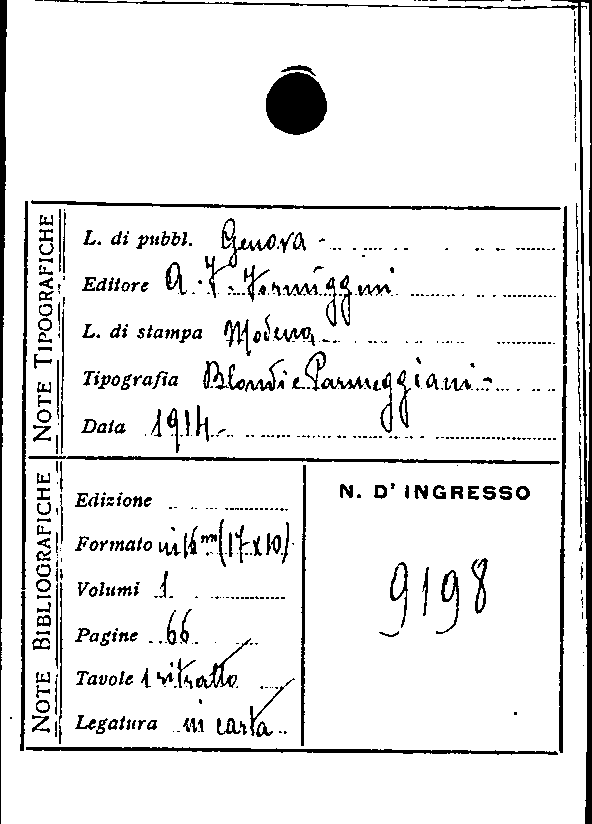 NOTE TIPOGRAFICHE
L. di pubbl. Genova -
Editore A. F. Formiggini
L. di stampa Modena
Tipografia Blondi e Parmeggiani -
Data 1914 -
NOTE BIBLIOGRAFICHE
Edizione
Formato in 16mo (17 x 10)
Volumi 1
Pagine 66
Tavole 1 ritratto
Legatura in carta
N. D' INGRESSO
9198